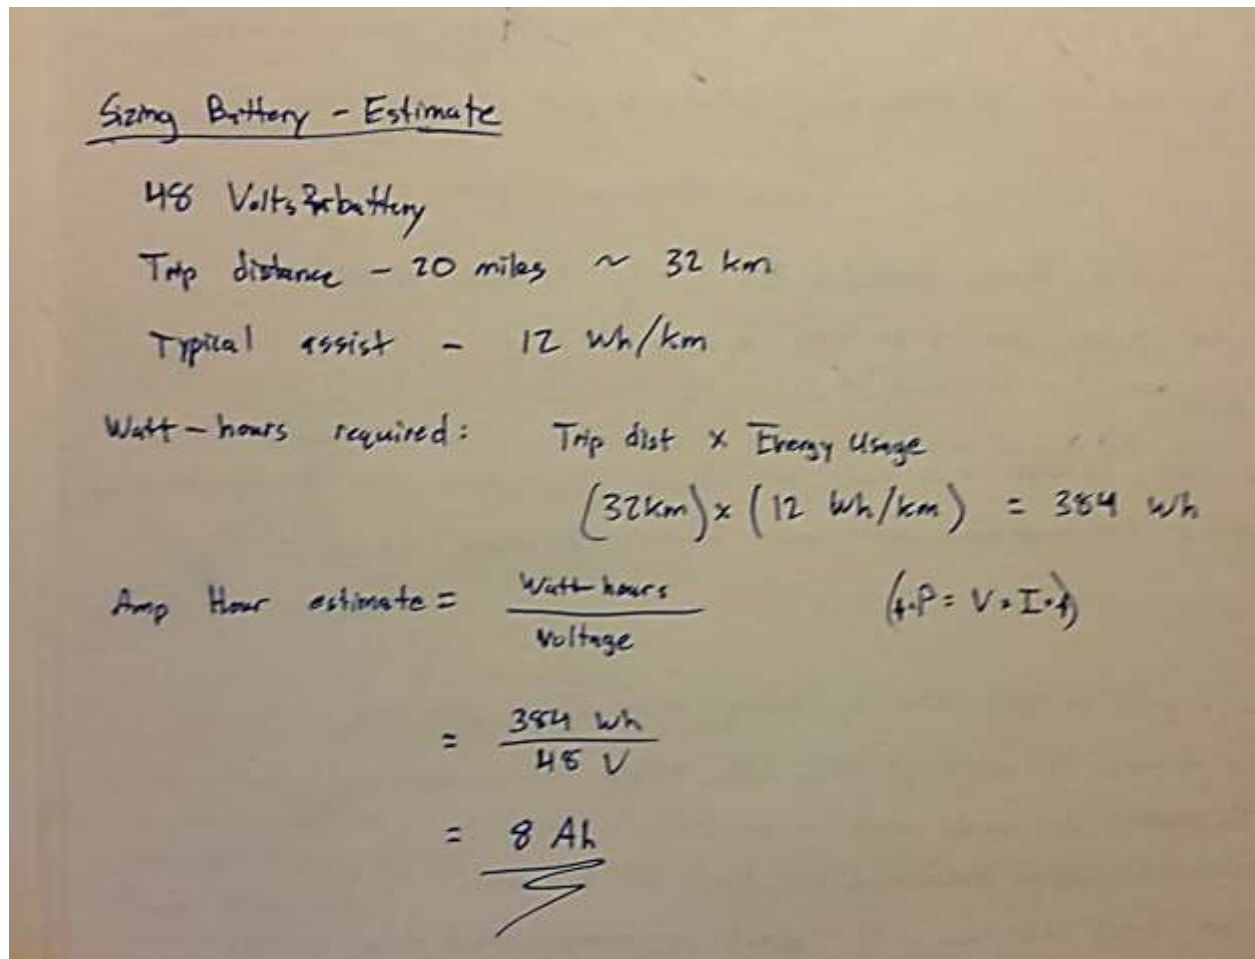 Sizing Battery - Estimate
48 Volts battery
Trip distance - 20 miles ~ 32 km
Typical assist - 12 Wh/km
Watt-hours required: Trip dist x Energy Usage
(32km) x (12 Wh/km) = 384 Wh
Amp Hour estimate = Watt-hours / Voltage (t·P = V·I·t)
= 384 Wh / 48 V
= 8 Ah